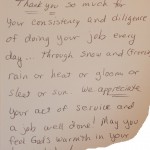 Thank you so much for
your consistency and diligence
of doing your job every
day... through snow and
rain or heat or gloom or
sleet or sun. We appreciate
your act of service and
a job well done! May you
feel God's warmth in your